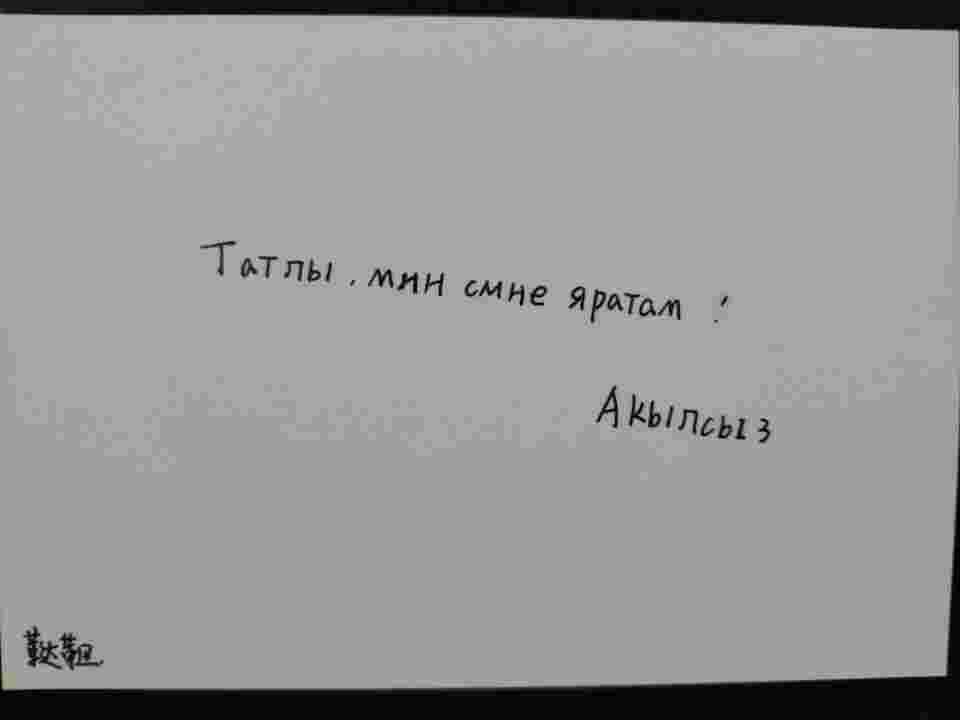 Татлы, мин сине яратам!
Акылсыз
鞑靼